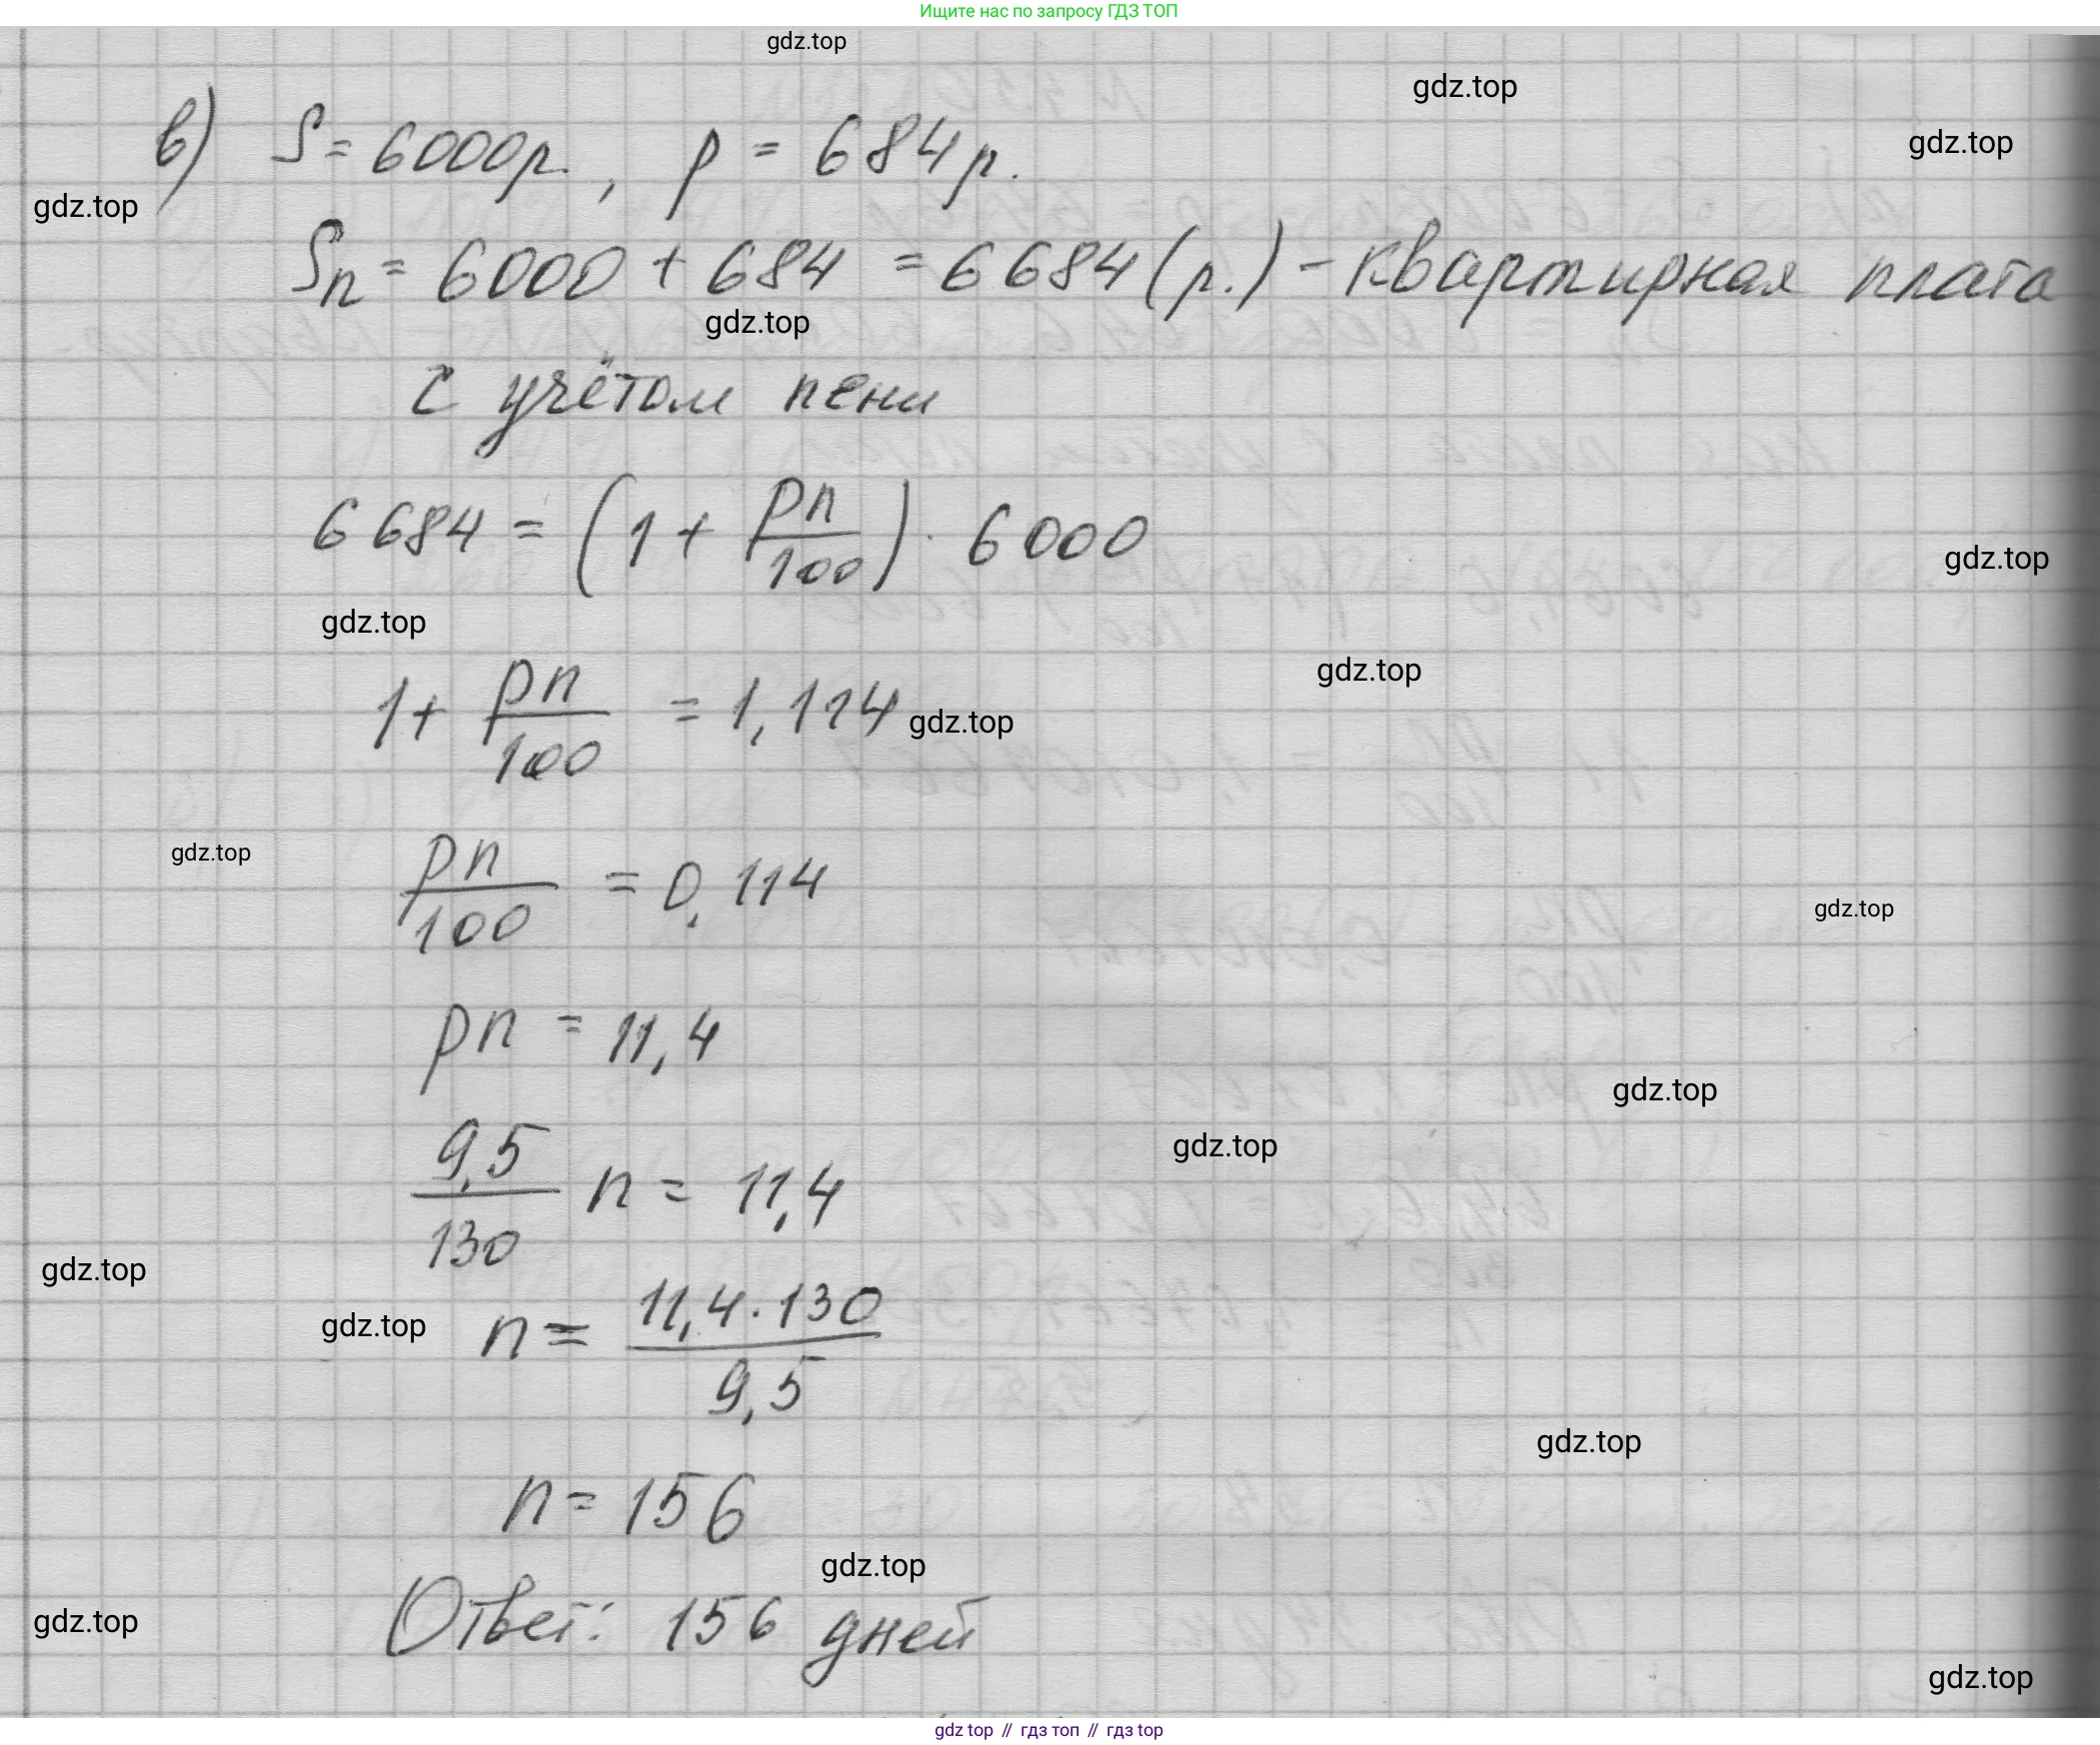 Ищите нас по запросу ГДЗ ТОП
gdz.top
gdz.top
gdz.top
в) S = 6000р., p = 684р.
gdz.top
Sn = 6000 + 684 = 6684 (р.) - квартирная плата
gdz.top
с учётом пени
6684 = (1 + pn/100) · 6000
gdz.top
gdz.top
gdz.top
1 + pn/100 = 1,114
gdz.top
gdz.top
pn/100 = 0,114
gdz.top
pn = 11,4
gdz.top
gdz.top
9,5/130 n = 11,4
gdz.top
gdz.top
n = 11,4·130/9,5
gdz.top
n = 156
gdz.top
Ответ: 156 дней
gdz.top
gdz.top
gdz top // гдз топ // гдз top